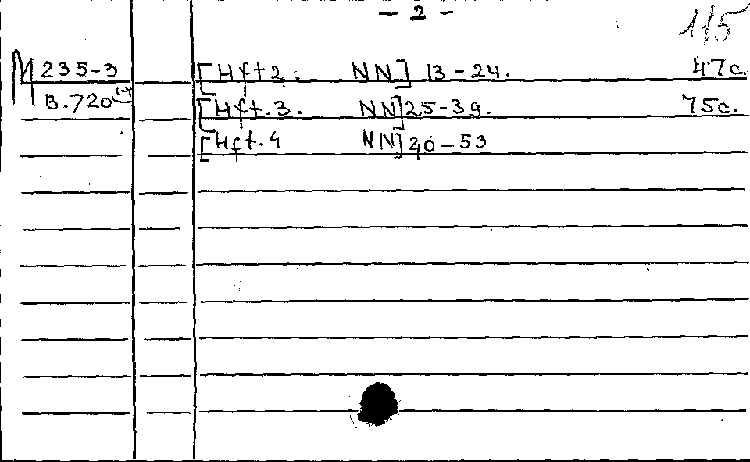 — 2 —
115
M 235-3 [Hft 2. NN] 13-24. 47c.
B.720 [Hft. 3. NN] 25-39. 75c.
[Hft. 4 NN] 40-53